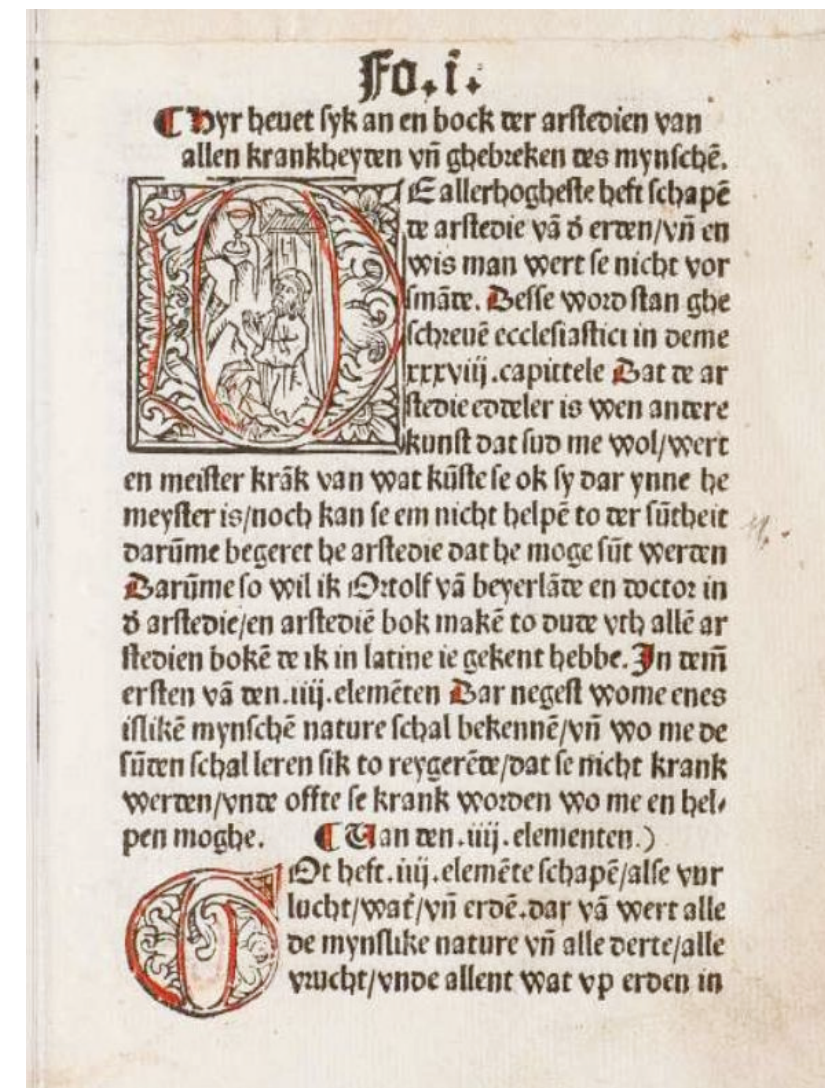 Fo. i.
¶ Hyr hevet syk an en bock der arstedien van
allen krankheyden vn̄ ghebreken des mynschē.
DE allerhogheste heft schapē
de arstedie vā d̄ erden/vn̄ en
wis man wert se nicht vor
smāde. Desse word stan ghe
schreuē ecclesiastici in deme
xxxviij.capittele Dat de ar
stedie eddeler is wen andere
kunst dat sud me wol/wert
en meister krāk van wat kūste se ok sy dar ynne he
meyster is/noch kan se em nicht helpē to der sūtheit
darūme begeret he arstedie dat he moge sūt werden
Darūme so wil ik Ortolf vā beyerlāde en doctor in
d̄ arstedie/en arstediē bok makē to dude vth allē ar
stedien bokē de ik in latine ie gekent hebbe. In dem̄
ersten vā den.iiij.elemēten Dar negest wome enes
islikē mynschē nature schal bekennē/vn̄ wo me de
sūden schal leren sik to reygerēde/dat se nicht krank
werden/vnde offte se krank worden wo me en hel-
pen moghe. ¶ Van den.iiij.elementen.)
GOt heft.iiij.elemēte schapē/alse vur
lucht/wat̄/vn̄ erdē.dar vā wert alle
de mynslike nature vn̄ alle derte/alle
vrucht/vnde allent wat vp erden in